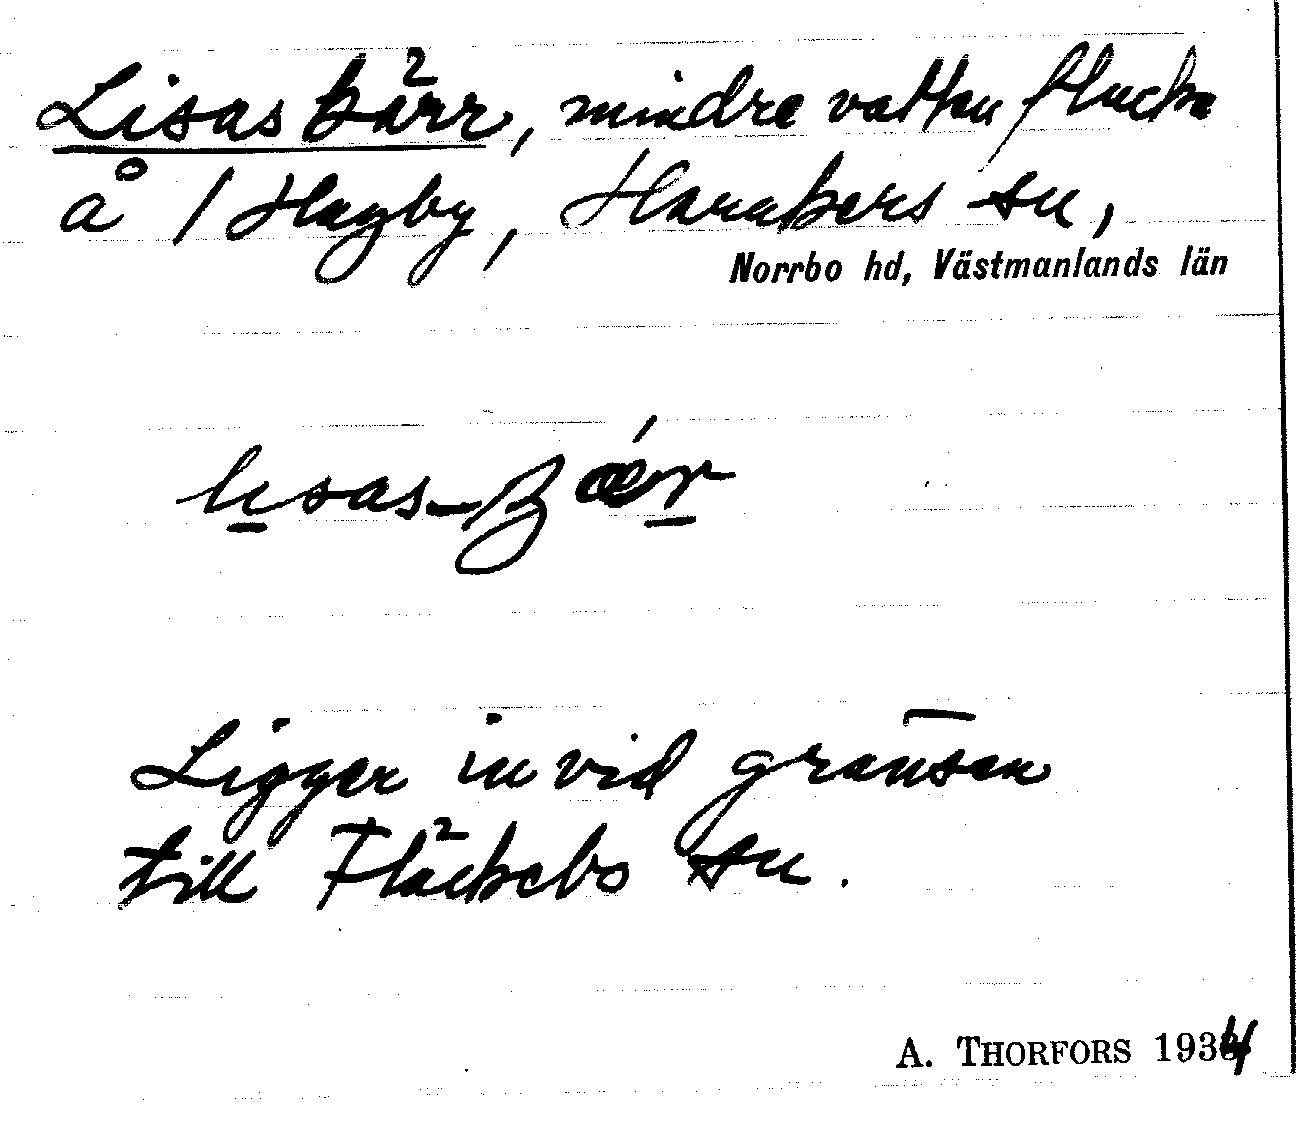 Lisas kärr, mindre vatten flucka
å / Hagby, Harakers sn,
Norrbo hd, Västmanlands län
Ligger invid gränsen
till Fläckebo sn.
A. THORFORS 1934